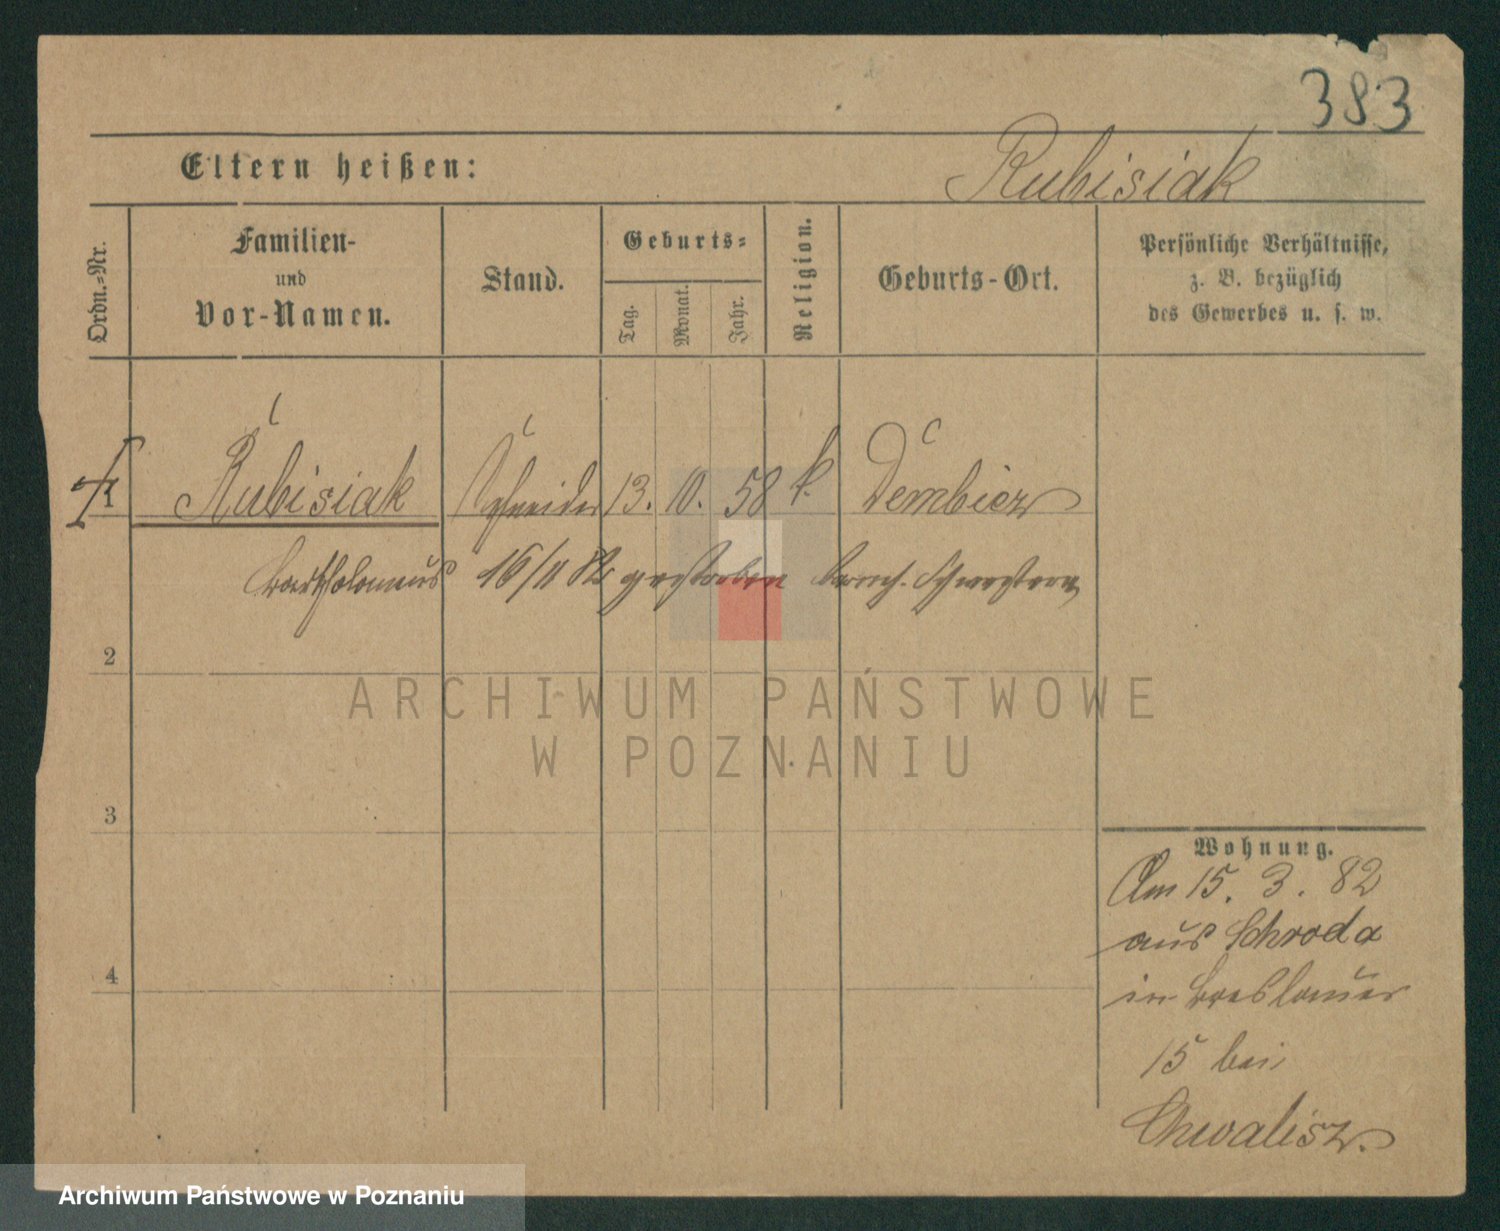 383
Eltern heißen:
Rubisiak
Ordn.-Nr.
Familien-
und
Vor-Namen.
Stand.
Geburts-
Tag.
Monat.
Jahr.
Religion.
Geburts-Ort.
Persönliche Verhältnisse,
z. B. bezüglich
des Gewerbes u. s. w.
1 Rubisiak Schneider 13. 10. 58 k. Dembicz
Bartholomeus 16/11 82 gestorben barmh. Schwestern
2
ARCHIWUM PAŃSTWOWE
W POZNANIU
3
4
Wohnung.
Am 15. 3. 82
aus Schroda
in Breslauer
15 bei
Chwalisz.
Archiwum Państwowe w Poznaniu